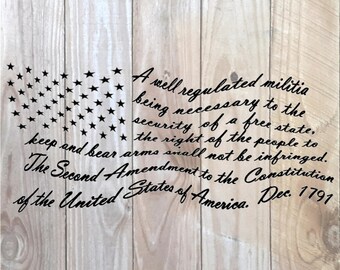 A well regulated militia
being necessary to the
security of a free state,
the right of the people to
keep and bear arms shall not be infringed.
The Second Amendment to the Constitution
of the United States of America. Dec. 1791